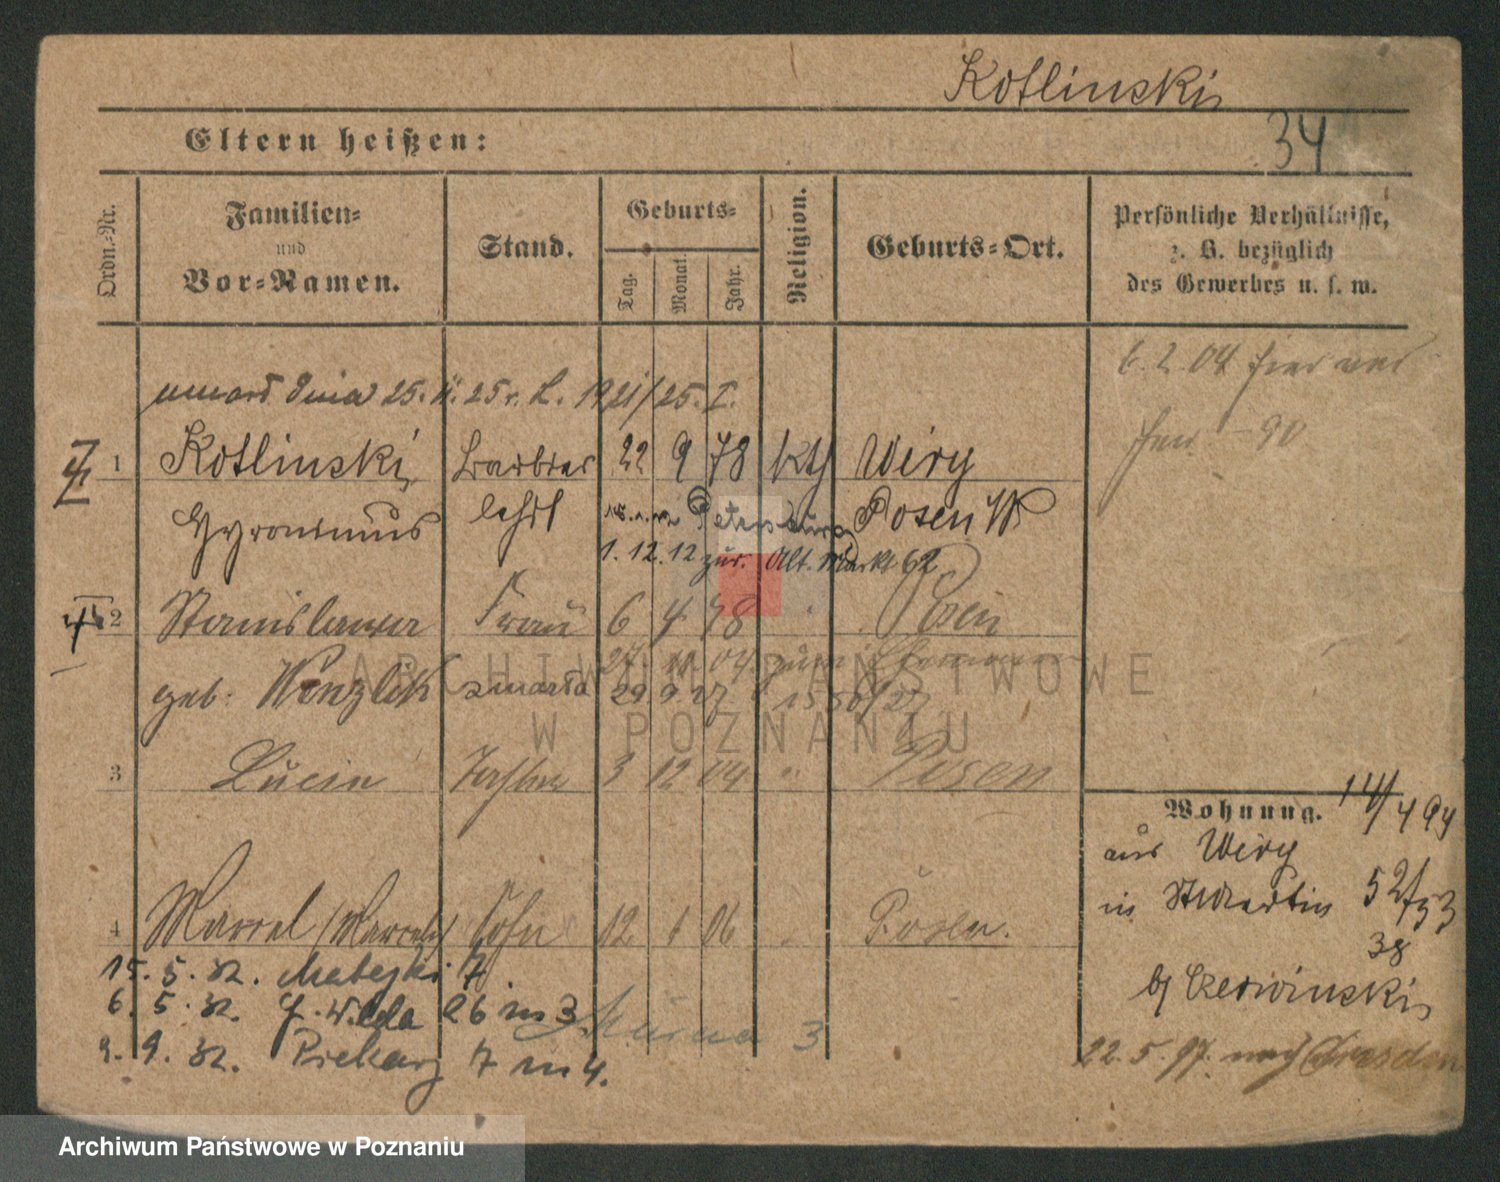 Kotlinski
34
Eltern heißen:
Ordn.-Nr.
Familien-
und
Vor-Namen.
Stand.
Geburts-
Tag.
Monat.
Jahr.
Religion.
Geburts-Ort.
Persönliche Verhältnisse,
z. B. bezüglich
des Gewerbes u. s. w.
6. 2. 04
umarł dnia 25. II. 25 r. L. 1921/25. I.
1 Kotlinski Barbier 22 9 78 kth Wiry
Hyronimus lehrl Posen W
Petersburg
1. 12. 12 zur. Alt. Markt 62
2 Stanislawa Frau 6 4 78 " Posen
geb: Wenzlik zmarła 29 9. 27
3 Lucie Tochter 3 12 04 " Posen
Wohnung. 14/4 94
aus Wiry
in St Martin 52/53
38
bj Czerwinski
22. 5. 97. nach Dresden
4 Marcel (Marcely) Sohn 12 1 06 " Posen.
15. 5. 32. Matejki 7
6. 5. 32. G. Wilda 26 m 3
3
2. 9. 32. Piekary 7 m 4.
ARCHIWUM PAŃSTWOWE
W POZNANIU
Archiwum Państwowe w Poznaniu